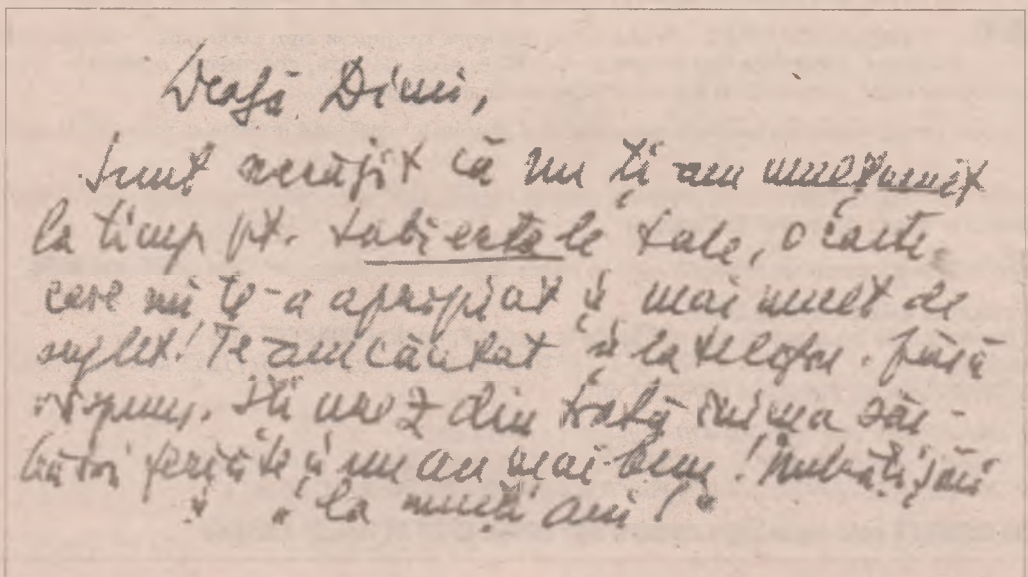 Dragă Dimi,
Sunt necăjit că nu ți-am mulțumit
la timp pt. tale, o carte
care mi te-a apropiat și mai mult de
suflet! Te-am căutat și la telefon. fără
răspuns. Îți urez din toată inima săr-
bători fericite și un an mai bun! Îmbrățișări
și „La mulți ani!"